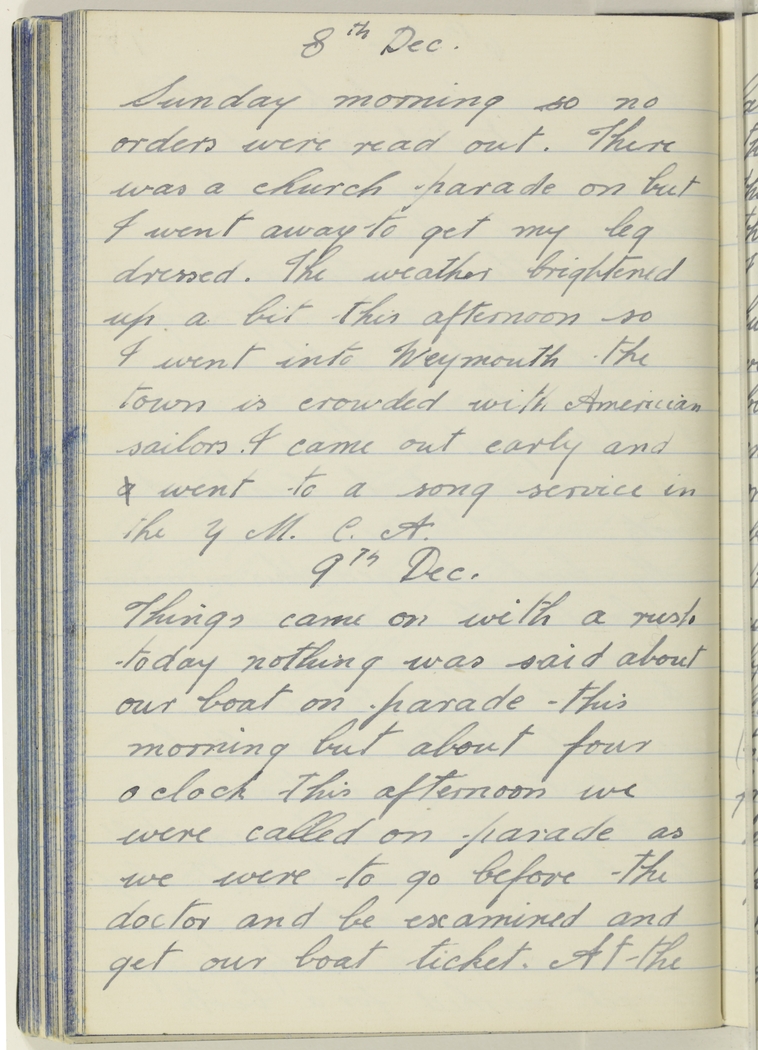 8th Dec.
Sunday morning so no
orders were read out. There
was a church parade on but
I went away to get my leg
dressed. The weather brightened
up a bit this afternoon so
I went into Weymouth the
town is crowded with Americian
sailors. I came out early and
I went to a song service in
the Y M. C. A.
9th Dec.
Things came on with a rush
today nothing was said about
our boat on parade this
morning but about four
o clock this afternoon we
were called on parade as
we were to go before the
doctor and be examined and
get our boat ticket. At the